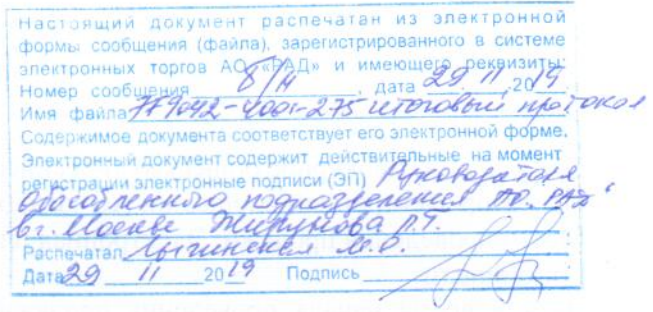 Настоящий документ распечатан из электронной
формы сообщения (файла), зарегистрированного в системе
электронных торгов АО «РАД» и имеющего реквизиты:
Номер сообщения б/н, дата 29 11 2019
Имя файла 779042-4001-275 итоговый протокол
Содержимое документа соответствует его электронной форме.
Электронный документ содержит действительные на момент
регистрации электронные подписи (ЭП) Руководителя
обособленного подразделения АО "РАД"
в г. Москве Д.Т.
Распечатал М.О.
Дата 29 11 2019 Подпись